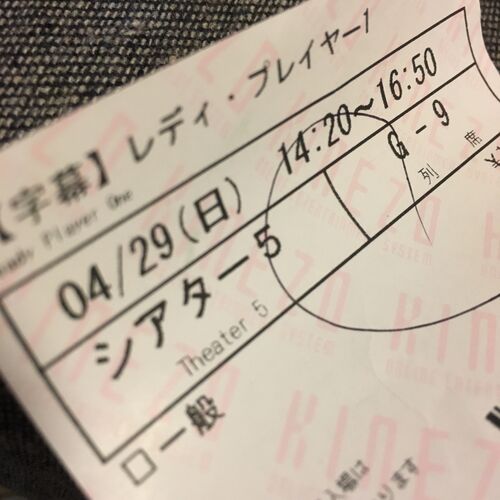 【字幕】レディ・プレイヤー1
Ready Player One
04/29(日) 14:20～16:50
シアター5 G - 9
列 席
Theater 5
□一般
KINEZO
ONLINE ENTERTAINMENT SYSTEM